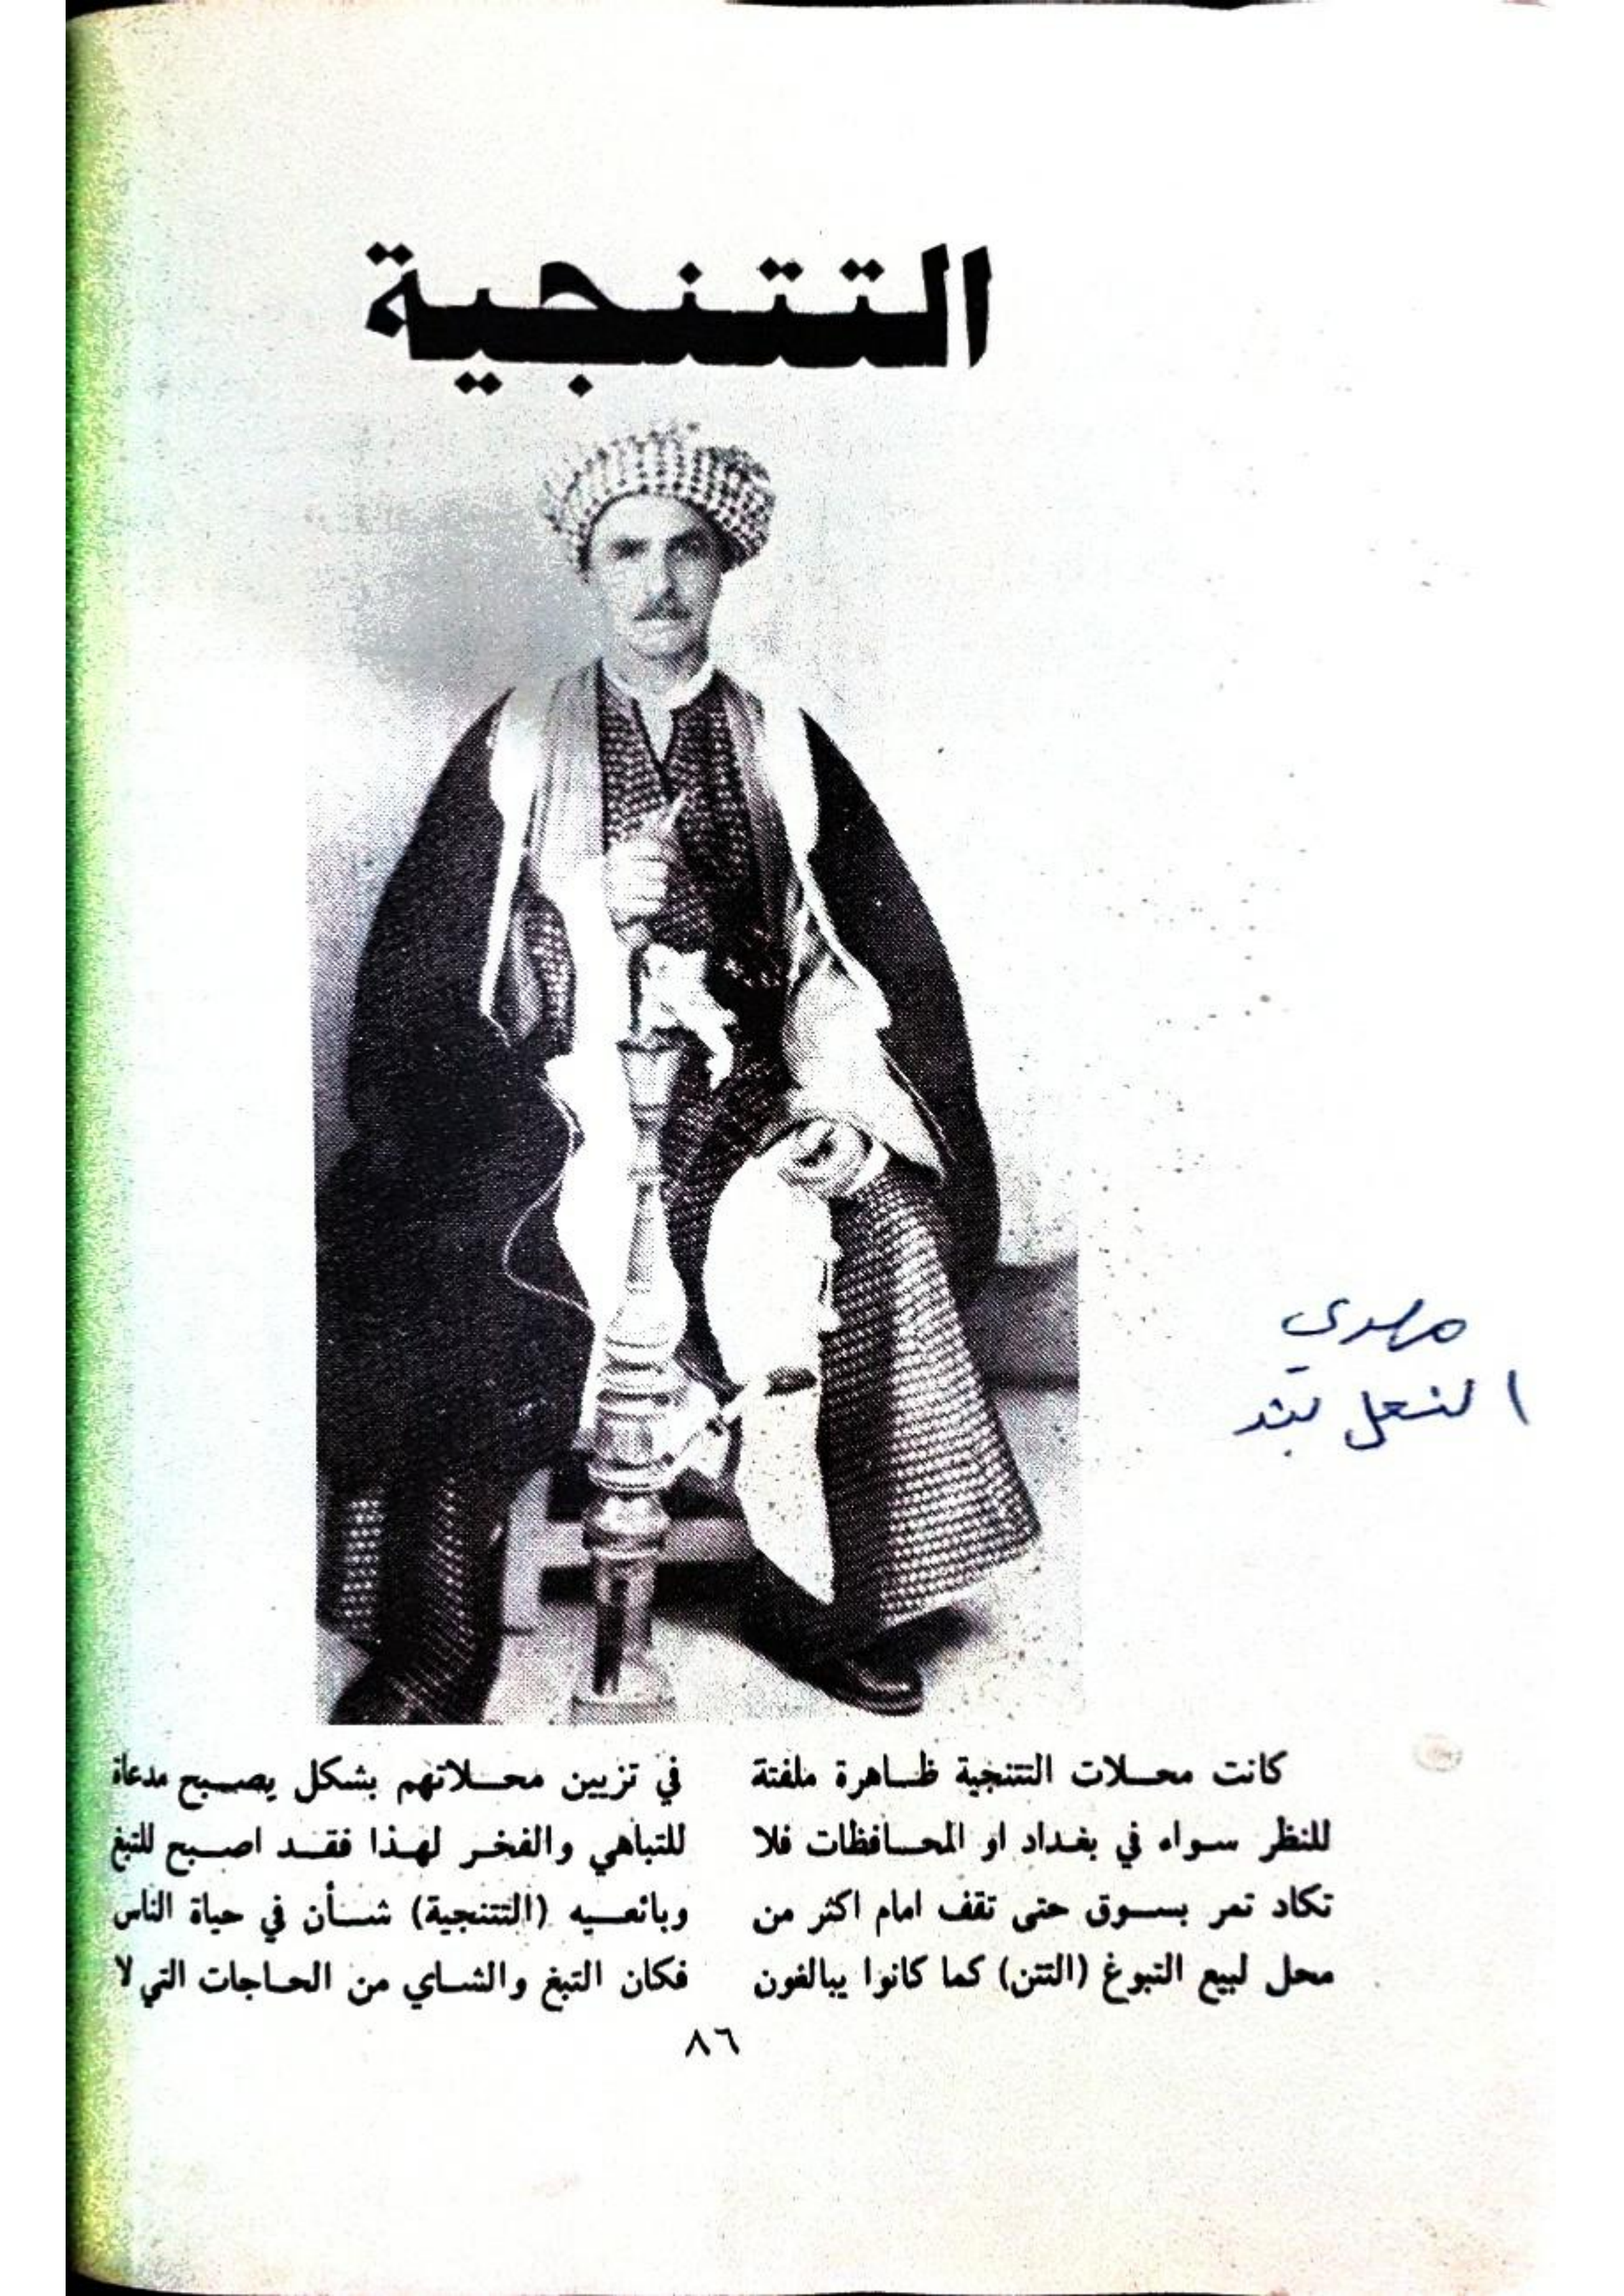 التتنجية
مهدي
النعل بند
كانت محلات التتنجية ظاهرة ملفتة
للنظر سواء في بغداد او المحافظات فلا
تكاد تمر بسوق حتى تقف امام اكثر من
محل لبيع التبوغ (التتن) كما كانوا يبالغون
في تزيين محلاتهم بشكل يصبح مدعاة
للتباهي والفخر لهذا فقد اصبح للتبغ
وبائعيه (التتنجية) شأن في حياة الناس
فكان التبغ والشاي من الحاجات التي لا
٨٦